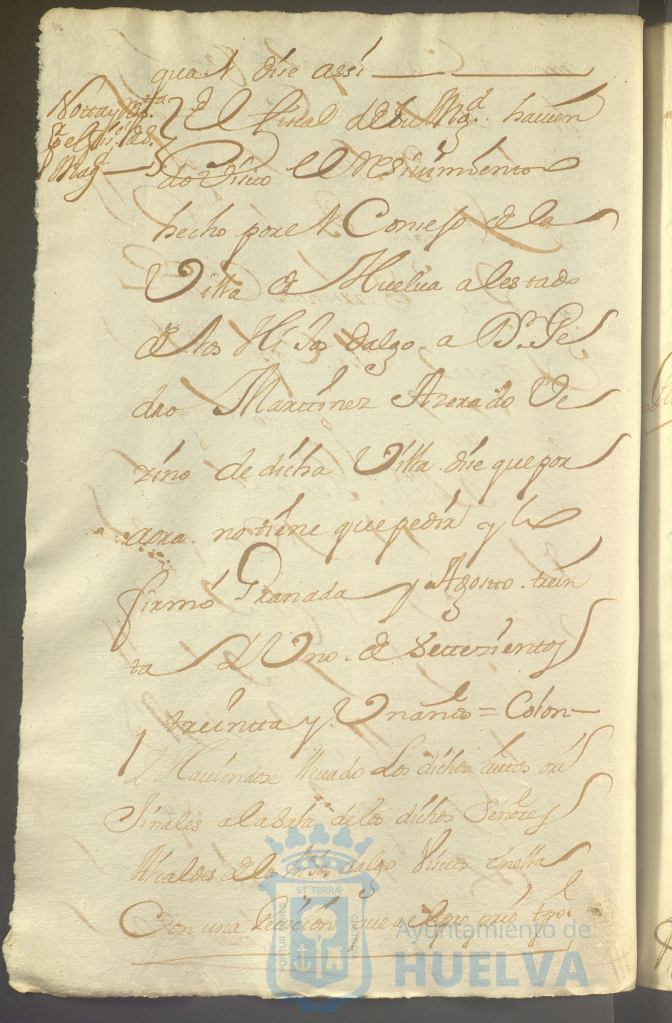 qual dize assi
Notta
fiscal de su
Magd
El fiscal de su Magd. havien
do visto el Resivimiento
hecho por el Consejo de la
Villa de Huelva al estado
de los Hijos dalgo a Dn. Pe
dro Marttinez Azerado Ve
zino de dicha Villa dize que por
aora no tiene que pedir y lo
firmó Granada y Agosto trein
ta y Uno de Settezientos
y treintta y Un años = Colon
Y Haviendose llevado Los dichos autos ori
Jinales a la Sala de los dichos Señores
Alcaldes de los hijos dalgo Vistos en ella
Con una Peticion que
ET TERRÆ
PORTUS MARIS
CUSTODIA
Ayuntamiento de
HUELVA